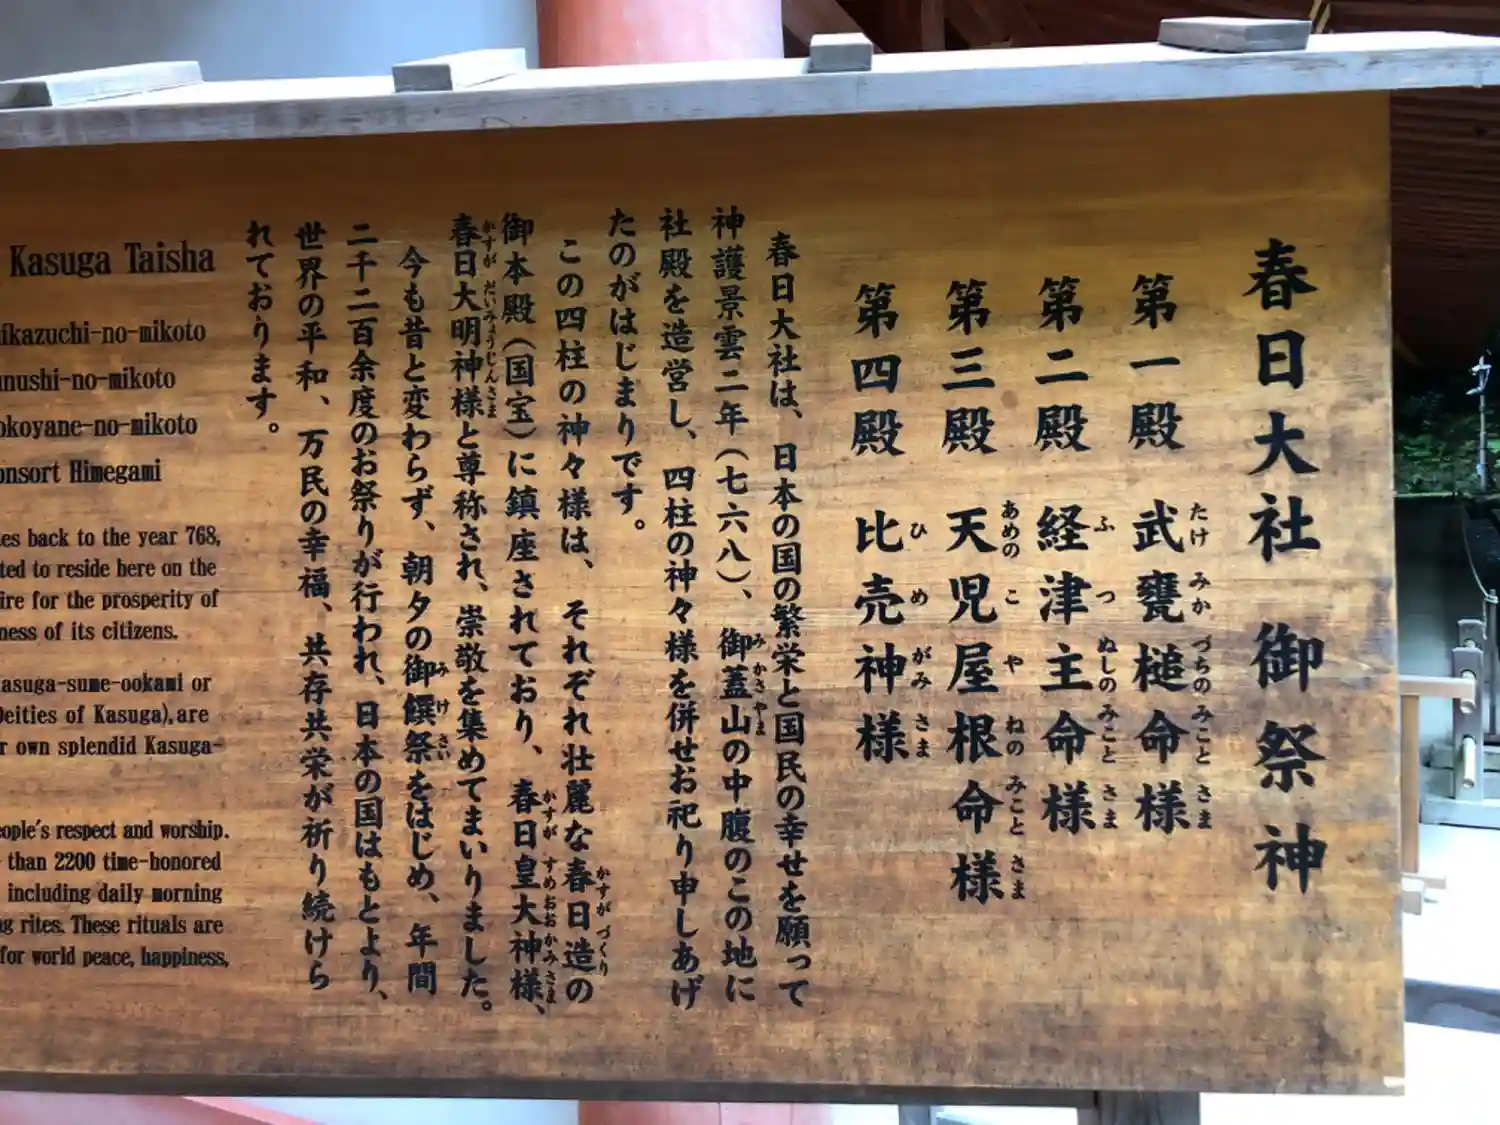 春日大社 御祭神
第一殿 武甕槌命様
たけ みか づちの みこと さま
第二殿 経津主命様
ふ つ ぬしの みこと さま
第三殿 天児屋根命様
あめの こ や ねの みこと さま
第四殿 比売神様
ひ め がみ さま
春日大社は、日本の国の繁栄と国民の幸せを願って
神護景雲二年(七六八)、御蓋山の中腹のこの地に
み かさ やま
社殿を造営し、四柱の神々様を併せお祀り申しあげ
たのがはじまりです。
この四柱の神々様は、それぞれ壮麗な春日造の
かすが づくり
御本殿(国宝)に鎮座されており、春日皇大神様、
かすが すめおおかみさま
春日大明神様と尊称され、崇敬を集めてまいりました。
かすが だいみょうじんさま
今も昔と変わらず、朝夕の御饌祭をはじめ、年間
み け さい
二千二百余度のお祭りが行われ、日本の国はもとより、
世界の平和、万民の幸福、共存共栄が祈り続けら
れております。
Kasuga Taisha
ikazuchi-no-mikoto
nushi-no-mikoto
okoyane-no-mikoto
onsort Himegami
es back to the year 768,
ted to reside here on the
ire for the prosperity of
ness of its citizens.
asuga-sume-ookami or
Deities of Kasuga), are
r own splendid Kasuga-
eople's respect and worship.
than 2200 time-honored
including daily morning
g rites. These rituals are
for world peace, happiness,